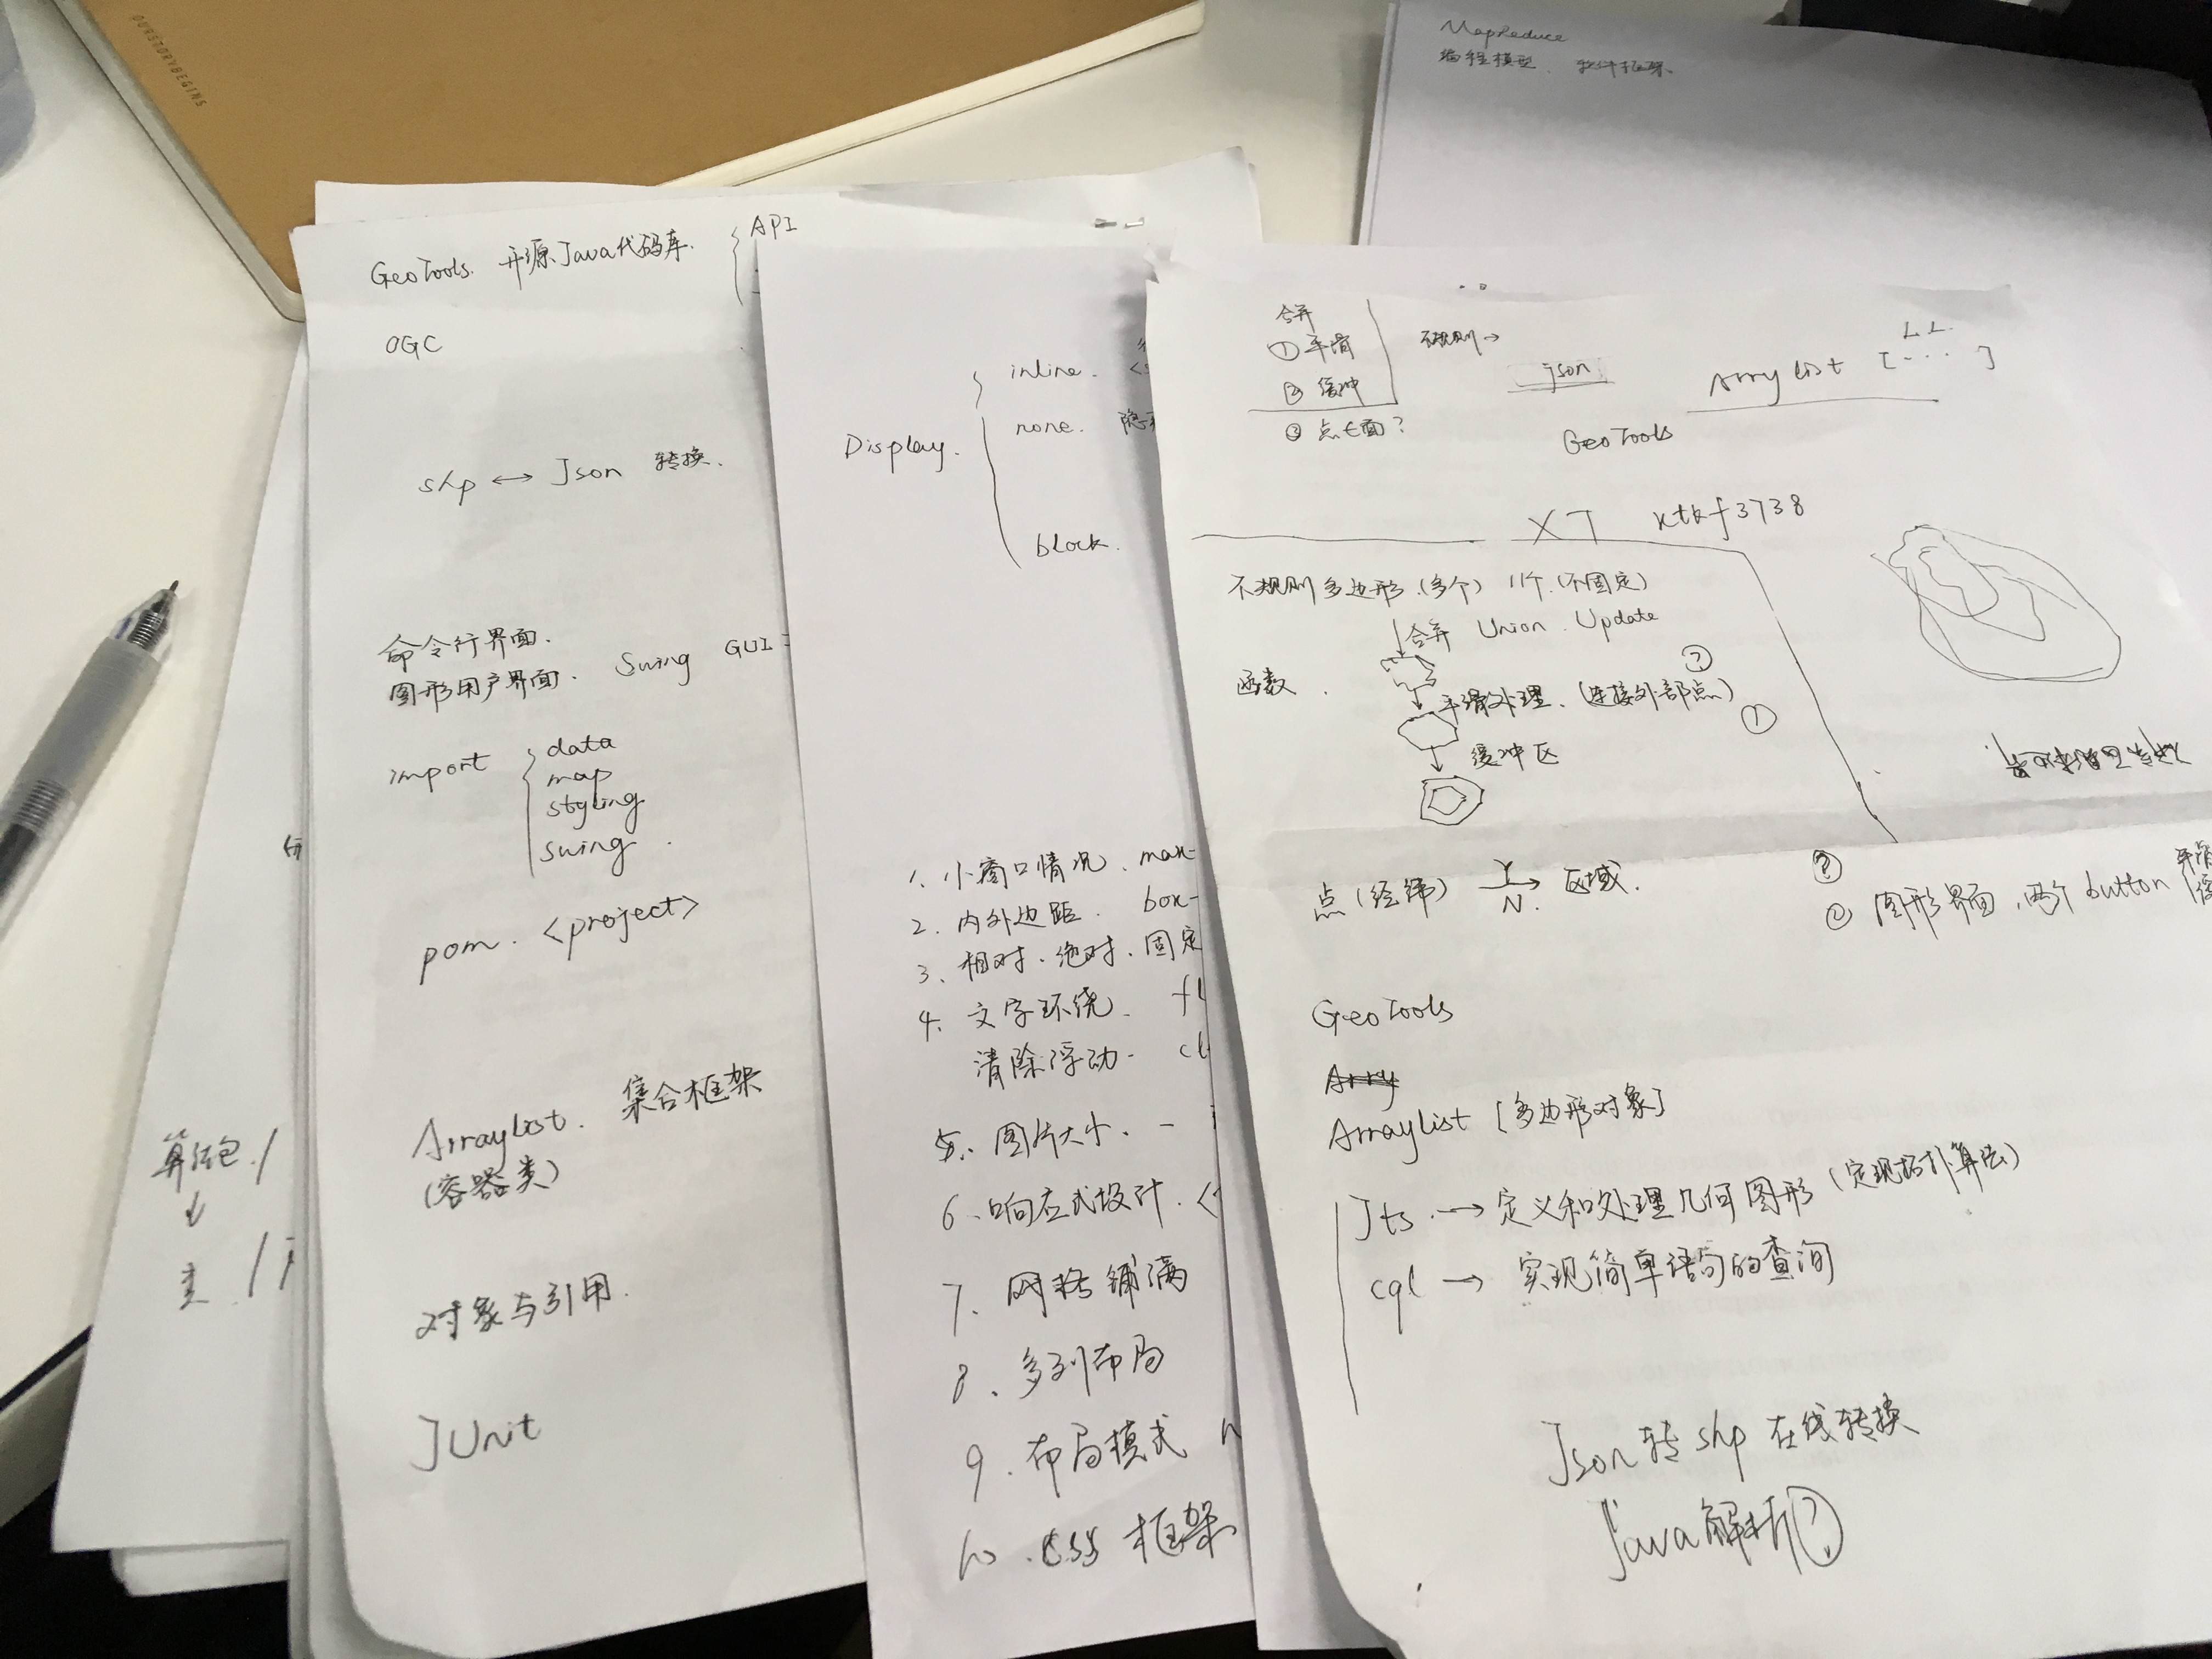 OURSTORYBEGINS
MapReduce
编程模型. 软件框架.
GeoTools. 开源Java代码库. API
OGC
shp ↔ Json 转换.
命令行界面.
图形用户界面. Swing GUI
import data
map
styling
swing.
pom. <project>
ArrayList. 集合框架
(容器类)
对象与引用.
JUnit
算法包.
Display. inline.
none.
block.
1. 小窗口情况. max-
2. 内外边距. box-
3. 相对、绝对、固定
4. 文字环绕. fl
清除浮动. cl
5. 图片大小.
6. 响应式设计. <
7. 网格铺满
8. 多列布局
9. 布局模式
10. CSS 框架
合并
① 平滑
② 缓冲
③ 点E面?
不规则→
json
Arrylist [....]
L L.
GeoTools
XT xtkf3738
不规则多边形.(多个) 11个.(不固定)
合并 Union. Update
函数.
平滑处理. (连接外部点) ② ①
缓冲区
点(经纬) Y→N. 区域.
② 图形界面, 两个button
GeoTools
Arry
ArrayList [多边形对象]
Jts. → 定义和处理几何图形 (实现拓扑算法)
cql → 实现简单语句的查询
Json转shp 在线转换
Java解析?